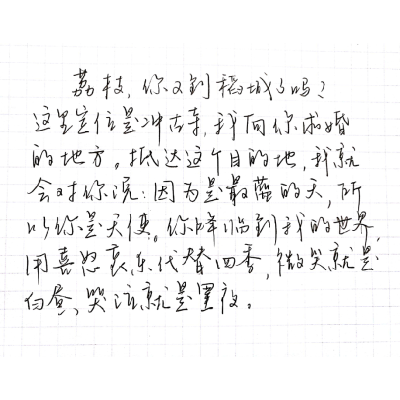 荔枝,你又到稻城了吗?
这里定位是冲古寺,我向你求婚
的地方。抵达这个目的地,我就
会对你说:因为是最蓝的天,所
以你是天使。你降临到我的世界,
用喜怒哀乐代替四季,微笑就是
白昼,哭泣就是黑夜。